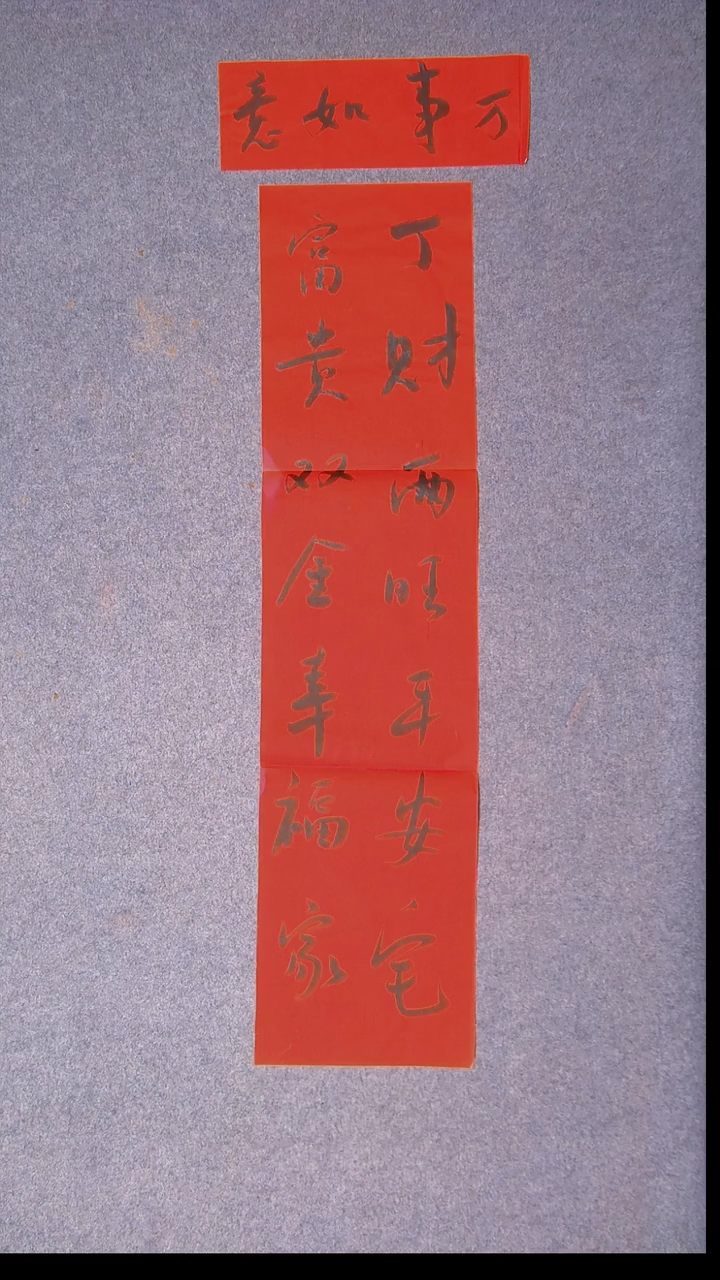 万事如意
丁财两旺平安宅
富贵双全幸福家